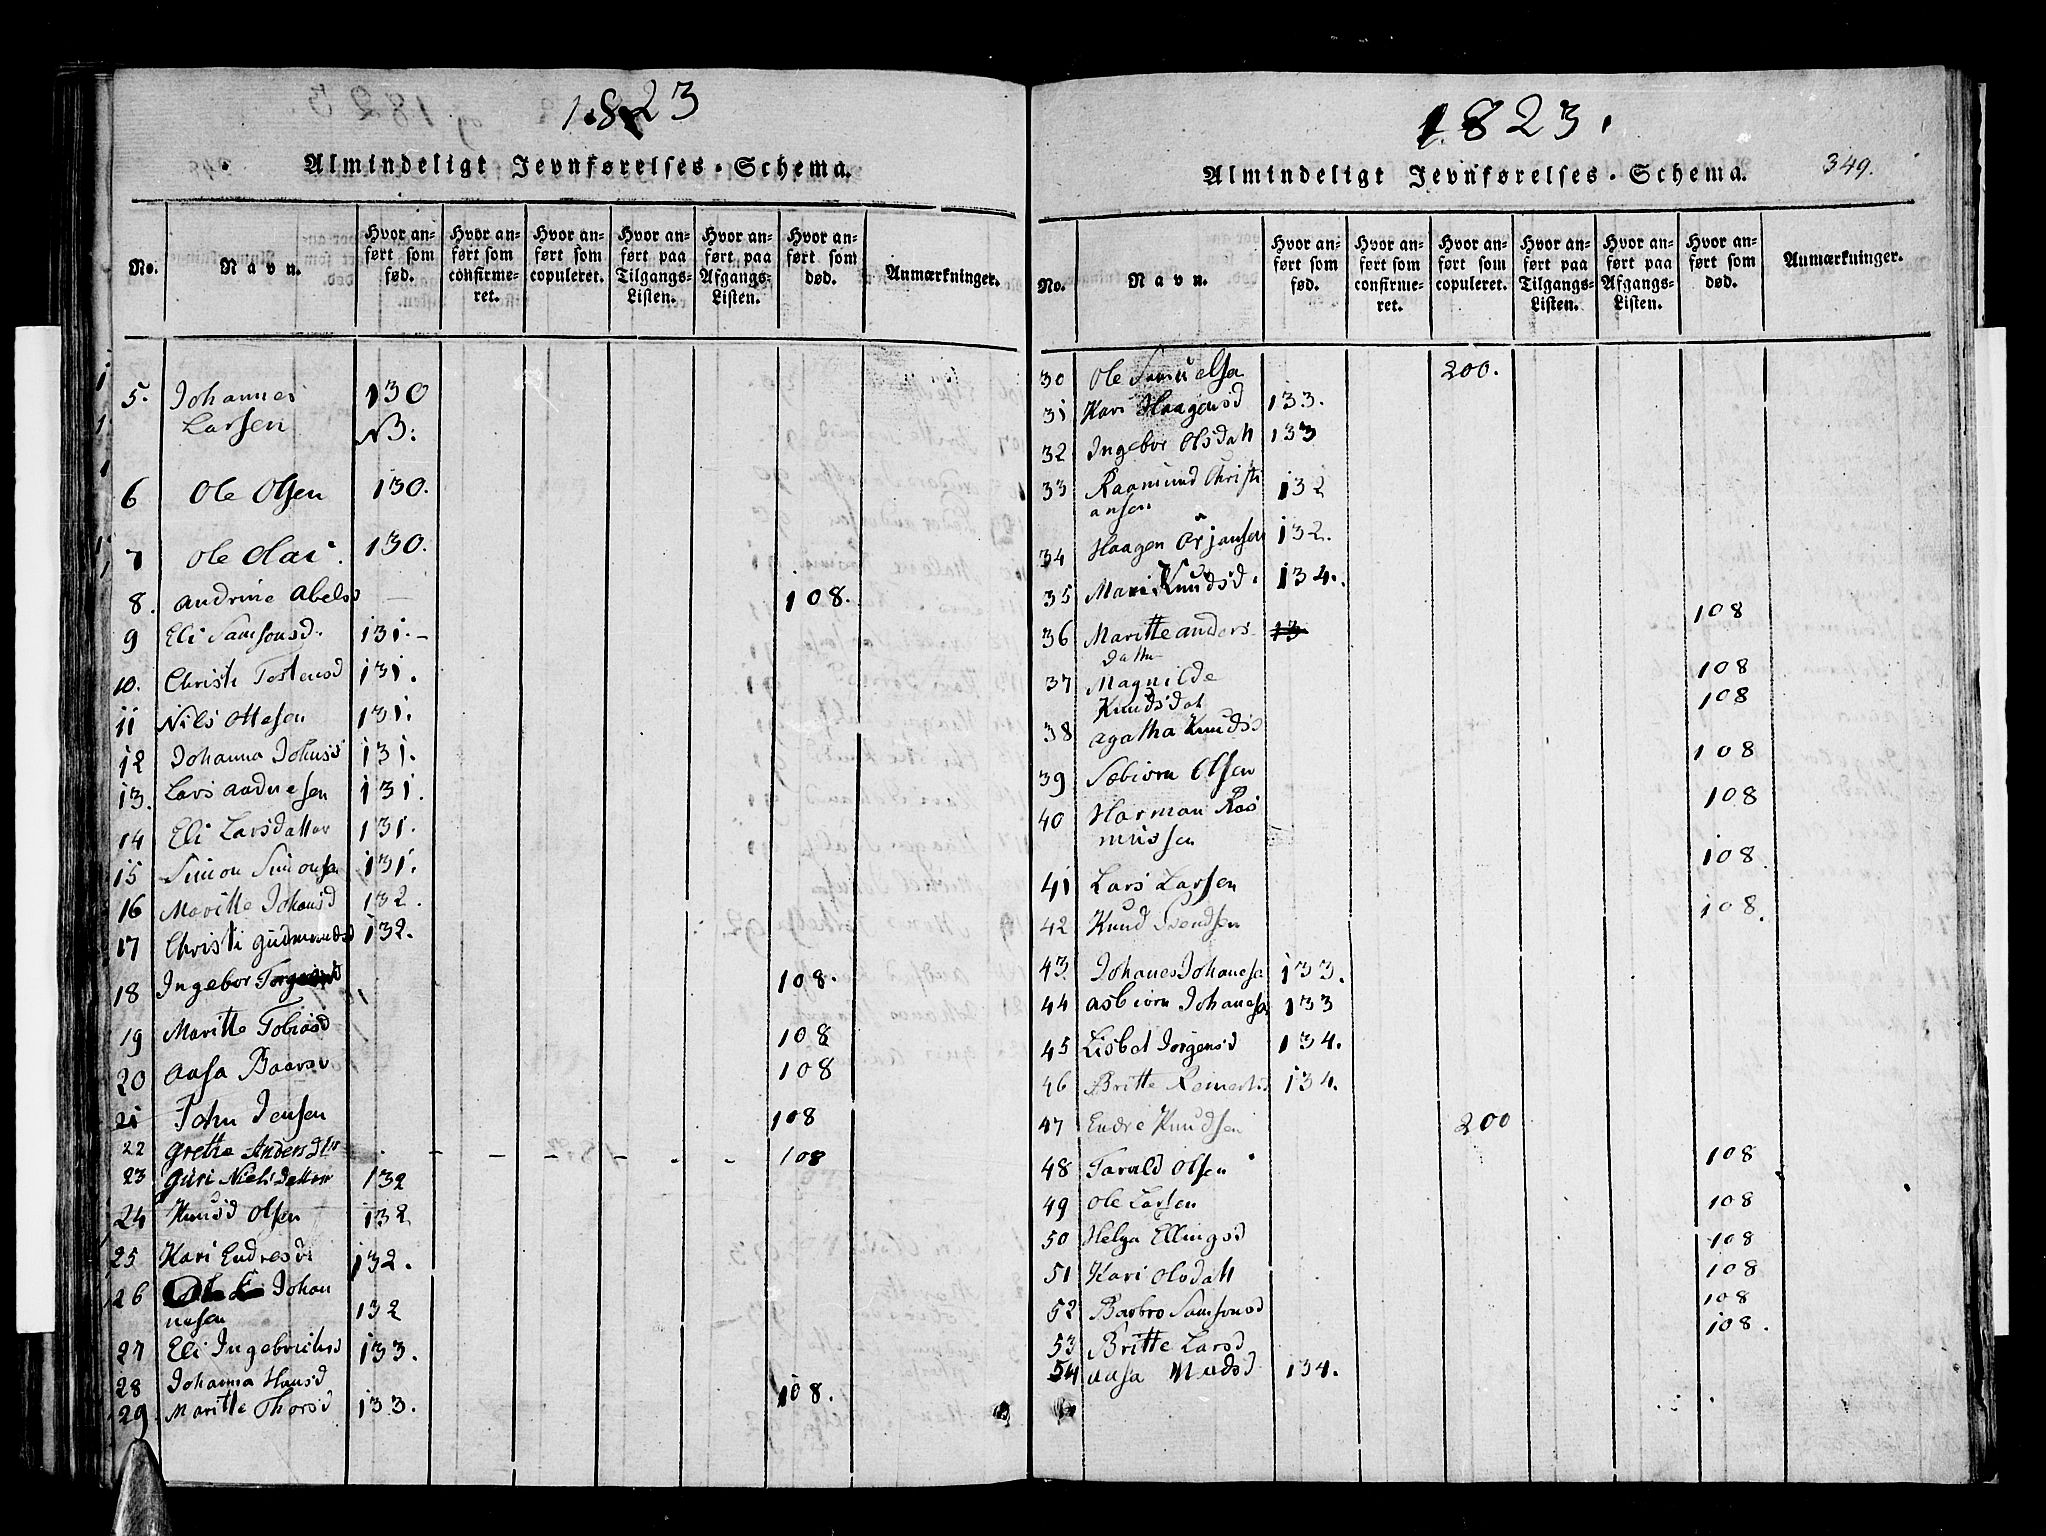 1823
Almindeligt Jevnførelses-Schema.
No. Navn. Hvor anført som fød. Hvor anført som confirmeret. Hvor anført som copuleret. Hvor anført paa Tilgangs-Listen. Hvor anført paa Afgangs-Listen. Hvor anført som død. Anmærkninger.
5. Johannes 130
Larsen NB:
6 Ole Olsen 130.
7 Ole Olai. 130.
8. Andrine Abelsd 108.
9 Eli Samsonsd. 131.-
10. Christi Tostensd 131.
11 Nils Ottesen 131.
12 Johanna Johnsd 131.
13. Lars Aadnesen 131.
14 Eli Larsdatter 131.
15 Simon Simonsen 131.
16 Maritte Johansd 132.
17 Christi Gudmundsd 132.
18 Ingebor 108.
19 Maritte Tobiasd 108
20 Aasa Baarsd 108
21 John Jensen 108
22 Grethe Andersdtr - - - - - - 108
23 Guri Nielsdatter 132
24 Knud Olsen 132
25 Kari Endresd 132.
26 Johan
nesen 132
27 Eli Ingebrichtsd 133.
28 Johanna Hansd 108.
29. Maritte Thorsd 133.
1823.
Almindeligt Jevnførelses-Schema.
349.
No. Navn. Hvor anført som fød. Hvor anført som confirmeret. Hvor anført som copuleret. Hvor anført paa Tilgangs-Listen. Hvor anført paa Afgangs-Listen. Hvor anført som død. Anmærkninger.
30 Ole Samuelsen 200.
31 Kari Haagensd 133.
32 Ingebor Olsdatt 133
33 Raamund Christi 132
ansen
34 Haagen Örjansen 132.
35 Mari Knudsd. 134.
36 Maritte Anders 13 108
datter
37 Magnilde 108
Knudsdat
38 Agatha Knudsd 108
39 Sæbiorn Olsen 108
40 Herman Ras 108
mussen
41 Lars Larsen 108
42 Knud Svendsen 108.
43 Johanes Johanesen 133.
44 Asbiorn Johanesen 133
45 Lisbet Jörgensd 134.
46 Britte Reinertsd 134.
47 Endre Knudsen 200
48 Tarald Olsen 108
49 Ole Larsen 108
50 Helga Ellingsd 108
51 Kari Olsdatt 108
52 Barbro Samsonsd 108
53 Britte Larsd 108.
54 Aasa Madsd 134.